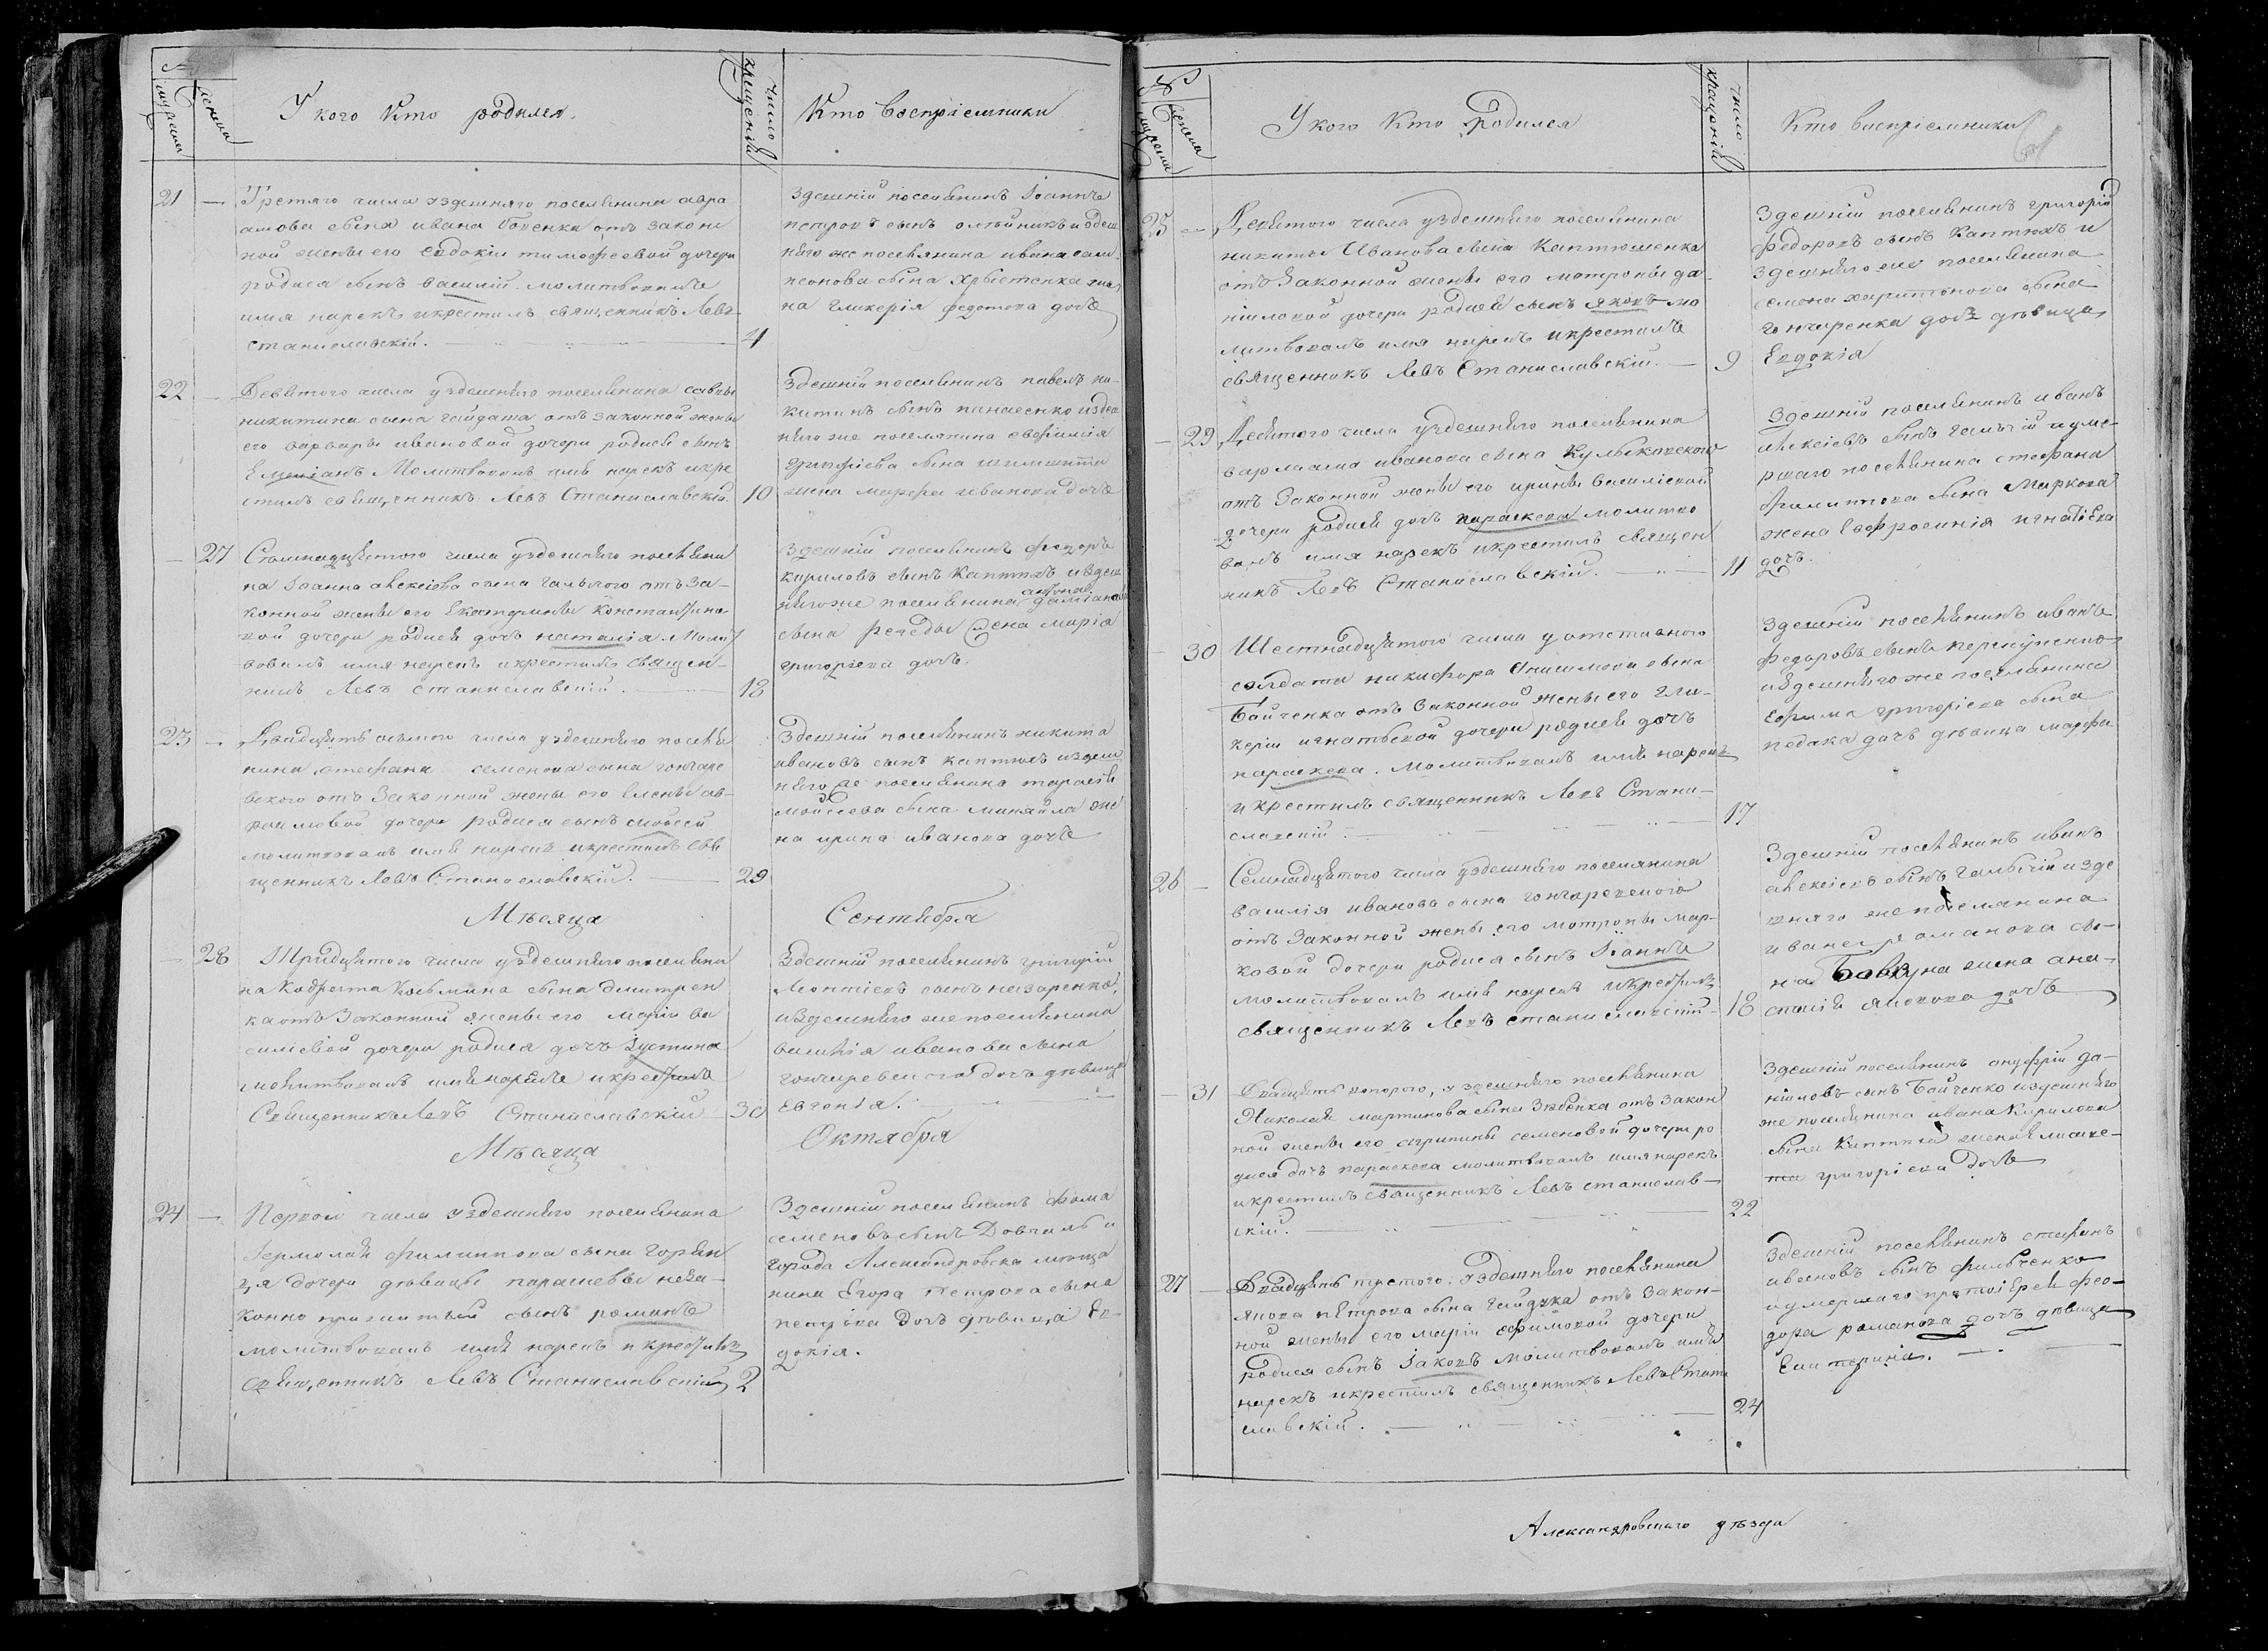 У кого кто родился.
число крещений
Кто восприемники
21 — Третяго числа уздешняго поселянина авра
амова сына ивана отъ закон
ной жены его евдокіи тимофеевой дочери
родися сынъ василій. молитвовалъ
имя нарекъ икрестилъ священникъ Левъ
станиславскій. 4
здешній поселянинъ Іоаннъ
петровъ сынъ олейникъ издеш
няго же поселянина ивана сам
псонова сына Христенка же
на гликерія федотова дочь
22 — Девятого числа уздешняго поселянина саввы
никитина сына гайдаша отъ законной жены
его варвары ивановой дочери родися сынъ
Емеліанъ Молитвовалъ имя нарекъ икре
стилъ священникъ Левъ Станиславскій. 10
Здешній поселянинъ павелъ ни-
китинъ сынъ панасенко издеш
няго же поселянина евфимія
сына
жена марфа иванова дочь
— 27 Семнадцятого числа уздешняго поселяни
на Іоанна алексіева сына гальчого отъ за-
конной жены его Екатерины константино
вой дочери родися дочь наталія. Молит
вовалъ имя нарекъ икрестилъ священ-
никъ Левъ станиславскій. 18
Здешній поселянинъ федоръ
кириловъ сынъ Каптюхъ издеш
нягоже поселянина даміана
антонова
сына жена марія
григоріева дочь.
23 — Двадцять осьмого числа уздешняго поселя
нина стефана семенова сына гончаре
вского отъ Законной жены его Елены ев-
фимовой дочери родися сынъ моисей
молитвовалъ имя нарекъ икрестилъ свя
щенникъ Левъ Станиславскій. 29
Здешній поселянинъ никита
ивановъ сынъ каптюхъ издеш
няго же поселянина тарасія
мойсеева сына миняйла же
на ирина иванова дочь
Мѣсяца Сентября
— 28 Тридцятого числа уздешняго поселяни
на Кодрата Козьмина сына дмитрен
ка отъ Законной жены его маріи ва
силіевой дочери родися дочь Іустина
молитвовалъ имя нарекъ икрестилъ
Священникъ Левъ Станиславскій 30
Здешній поселянинъ григорій
Леонтіевъ сынъ назаренко,
издешняго же поселянина
василія иванова сына
гончаревского дочь дѣвица
Евгенія.
Мѣсяца Октября
24 — Первого числа уздешняго поселянина
Іермолая филиппова сына
дочери дѣвицы парасковы неза-
конно прижитый сынъ романъ
молитвовалъ имя нарекъ икрестилъ
священникъ Левъ Станиславскій 2
Здешній поселянинъ фома
семеновъ сынъ Довгаль и
города Александровска мѣща
нина Егора Петрова сына
петрова дочь дѣвица Ев-
докія.
У кого кто Родился
число крещеній
Кто восприемники
25 — Девятого числа уздешняго поселянина
никиты Иванова сына Каптюшенка
отъ Законной жены его мотроны да-
ніиловой дочери родися сынъ яковъ мо
литвовалъ имя нарекъ икрестилъ
священникъ Левъ Станиславскій. — 9
Здешній поселянинъ григорій
федоровъ сынъ Каптюхъ и
здешняго же поселянина
семена харитонова сына
гончаренка дочь дѣвица
Евдокія
— 29 Десятого числа уздешняго поселянина
варлаама иванова сына Кулбаковского
отъ Законной жены его ирины василіевой
дочери родися дочь параскева молитво
валъ имя нарекъ икрестилъ священ
никъ Левъ Станиславскій. 11
Здешній поселянинъ иванъ
алексіевъ сынъ гальчій иуме-
ршаго поселянина стефана
филиппова сына Маркова
жена Евфросинія игнатіева
дочь.
— 30 Шестнадцятого числа у отставного
солдата никифора Онисимова сына
Бойченка отъ Законной жены его гли-
керіи игнатьевой дочери родися дочь
параскева. молитвовалъ имя нарекъ
икрестилъ священникъ Левъ Стани-
славскій. 17
Здешній поселянинъ иванъ
федоровъ сынъ
издешняго же поселянина
Ефима григоріева сына
педака дочь дѣвица марфа
26 — Семнадцятого числа уздешняго поселянина
василія иванова сына гончаревского
отъ Законной жены его мотроны мар-
ковой дочери родися сынъ Іоаннъ
молитвовалъ имя нарекъ икрестилъ
священникъ Левъ станиславскій 18
Здешній поселянинъ иванъ
алексіевъ сынъ гальчій изде
шняго же поселянина
ивана романова сы-
на Бовкуна жена ана-
стасія яковова дочь
— 31 Двадцять второго, уздешняго поселянина
Николая мартинова сына отъ закон
ной жены его агрипины семеновой дочери ро
дися дочь параскева молитвовалъ имя нарекъ
икрестилъ священникъ Левъ станислав-
скій. 22
Здешній поселянинъ онуфрій да-
ніиловъ сынъ Бойченко издешняго
же поселянина ивана Кирилова
сына Каптюха жена Елисаве-
та григоріева дочь
27 — Двадцять третого, уздешняго поселянина
якова петрова сына гайдука отъ Закон-
ной жены его маріи ефимовой дочери
родися сынъ Іаковъ молитвовалъ имя
нарекъ икрестилъ священникъ Левъ Стани
славскій. 24
Здешній поселянинъ стефанъ
ивановъ сынъ фильченко
иумершаго протоіерея фео-
дора романова дочь дѣвица
Екатерина.
Александровского уѣзда